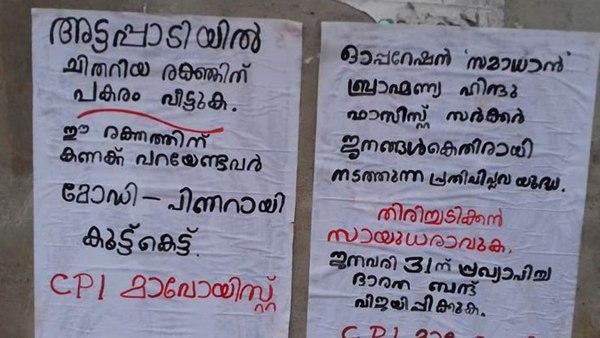 അട്ടപ്പാടിയിൽ
ചിതറിയ രക്തത്തിന്
പകരം വീട്ടുക.
ഈ രക്തത്തിന്
കണക്ക് പറയേണ്ടവർ
മോഡി - പിണറായി
കൂട്ട്കെട്ട്.
CPI മാവോയിസ്റ്റ്
ഓപ്പറേഷൻ 'സമാധാൻ'
ബ്രാഹ്മണ്യ ഹിന്ദു
ഫാസിസ്റ്റ് സർക്കർ
ജനങ്ങൾക്കെതിരായി
നടത്തുന്ന പ്രതിവിപ്ലവ യുദ്ധം.
തിരിച്ചടിക്കാൻ
സായുധരാവുക.
ജനുവരി 31ന് പ്രഖ്യാപിച്ച
ഭാരത ബന്ദ്
വിജയിപ്പിക്കുക.
CPI